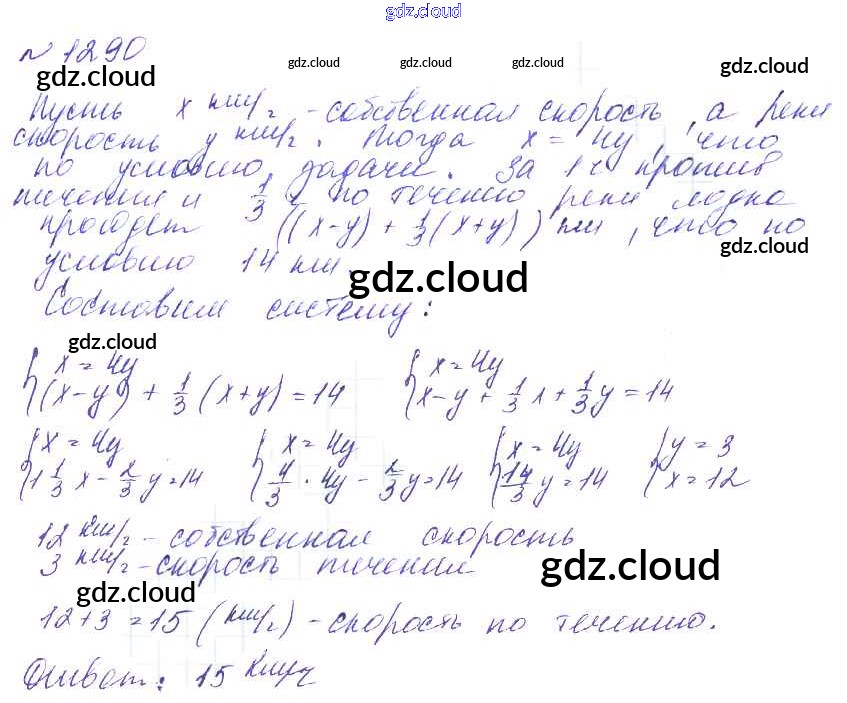 gdz.cloud
№ 1290
gdz.cloud gdz.cloud gdz.cloud gdz.cloud gdz.cloud
Пусть x км/ч - собственная скорость, а реки
скорость y км/ч. Тогда x = 4y, что
по условию задачи. За 1 ч против
течения и 1/3 ч по течению реки лодка
пройдет ((x-y) + 1/3(x+y)) км, что по
gdz.cloud
условию 14 км.
gdz.cloud
Составим систему:
gdz.cloud
{x = 4y {x = 4y
{(x-y) + 1/3 (x+y) = 14 {x-y + 1/3 x + 1/3 y = 14
{x = 4y {x = 4y {x = 4y {y = 3
{1 1/3 x - 2/3 y = 14 {4/3 · 4y - 2/3 y = 14 {14/3 y = 14 {x = 12
12 км/ч - собственная скорость
3 км/ч - скорость течения
gdz.cloud gdz.cloud
12+3 = 15 (км/ч) - скорость по течению.
Ответ: 15 км/ч